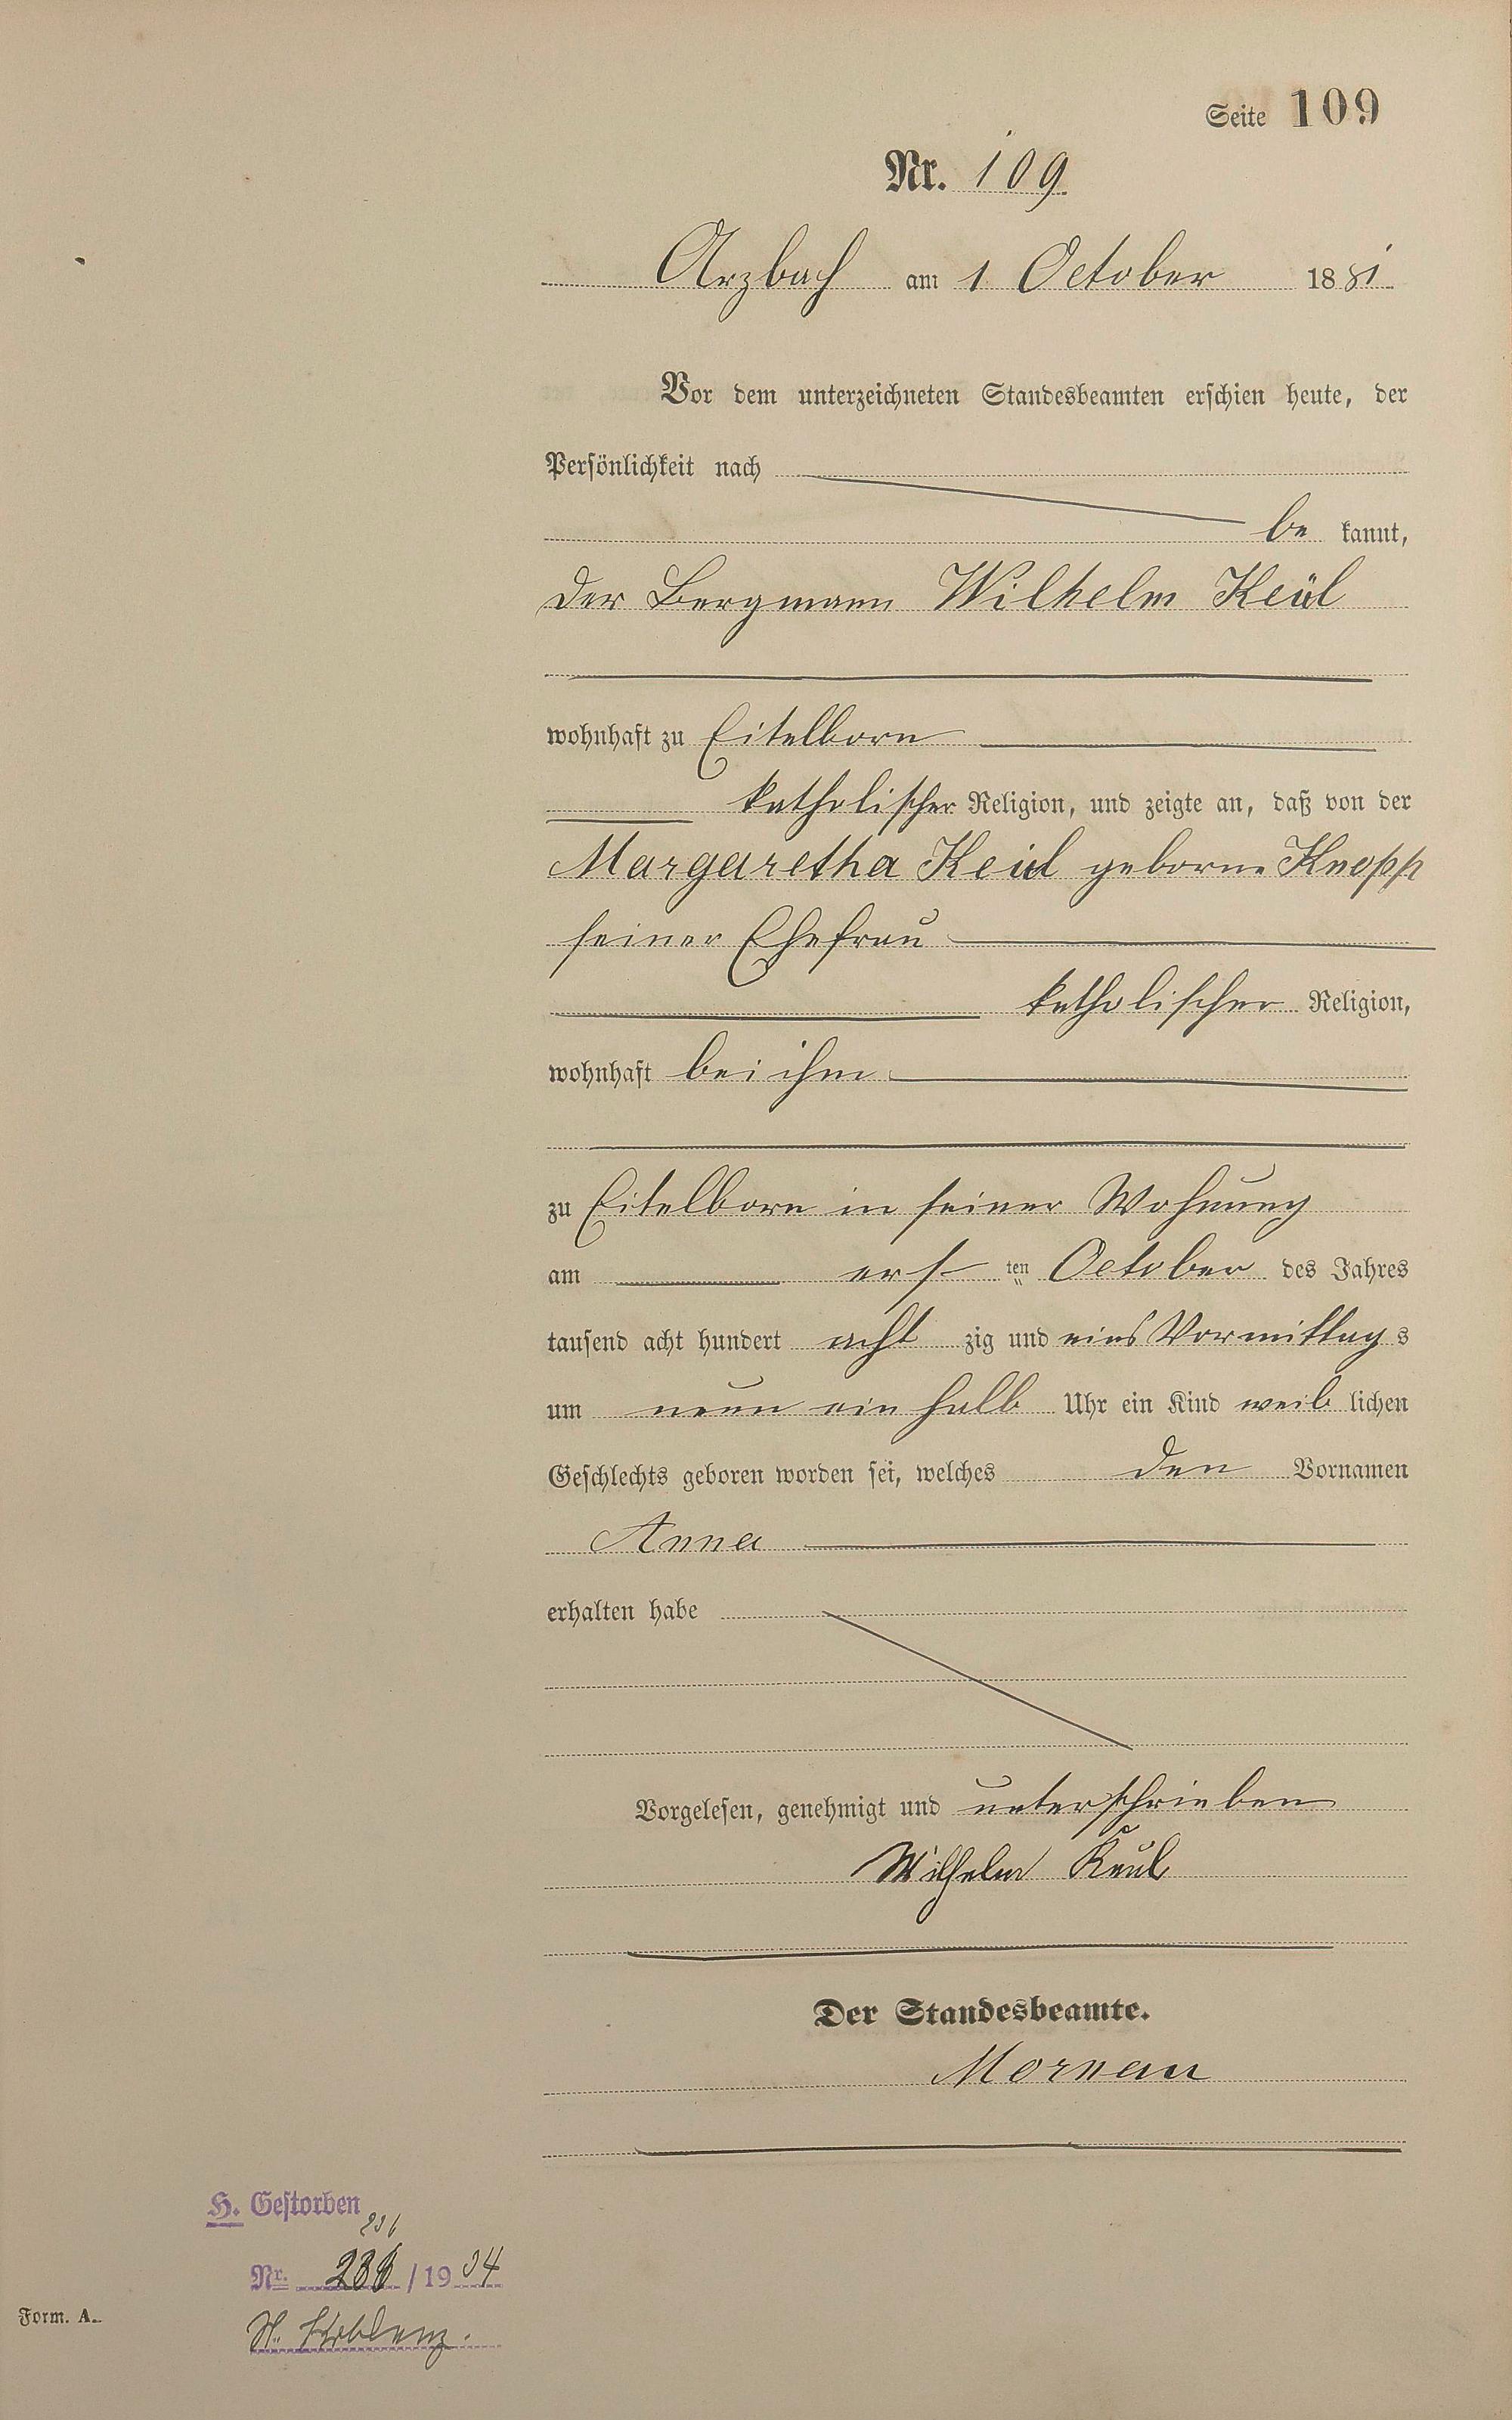 Seite 109
Nr. 109
Arzbach am 1 October 1881
Vor dem unterzeichneten Standesbeamten erschien heute, der
Persönlichkeit nach
be kannt,
der Bergmann Wilhelm Keül
wohnhaft zu Eitelborn
katholischer Religion, und zeigte an, daß von der
Margaretha Keül geborne Knopp
seiner Ehefrau
katholischer Religion,
wohnhaft bei ihm
zu Eitelborn in seiner Wohnung
am ersten October des Jahres
tausend acht hundert acht zig und eins Vormittags
um neun ein halb Uhr ein Kind weib lichen
Geschlechts geboren worden sei, welches den Vornamen
Anna
erhalten habe
Vorgelesen, genehmigt und unterschrieben
Wilhelm Keul
Der Standesbeamte.
H. Gestorben
Nr. /19 34
St. Koblenz.
Form. A.